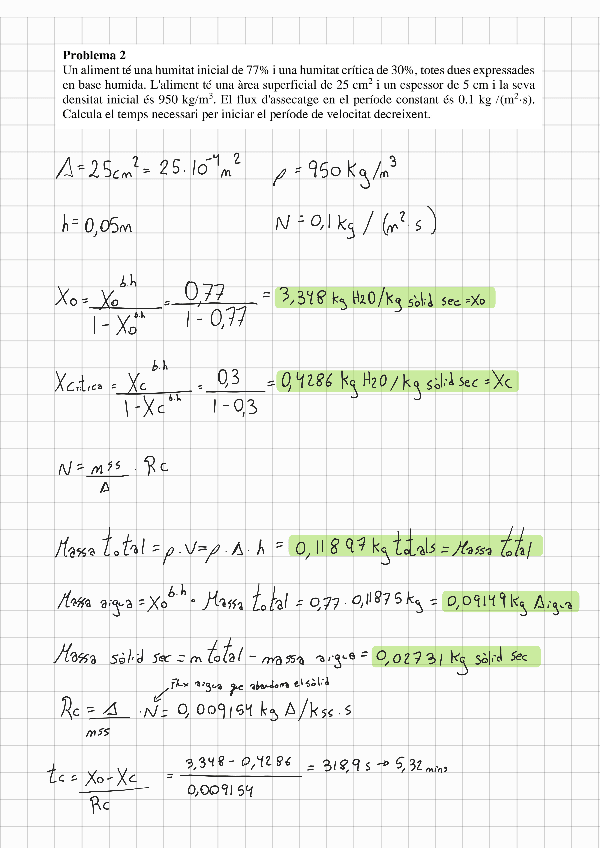 Problema 2
Un aliment té una humitat inicial de 77% i una humitat crítica de 30%, totes dues expressades
en base humida. L'aliment té una àrea superficial de 25 cm² i un espessor de 5 cm i la seva
densitat inicial és 950 kg/m³. El flux d'assecatge en el període constant és 0.1 kg /(m²·s).
Calcula el temps necessari per iniciar el període de velocitat decreixent.
A = 25cm² = 25·10⁻⁴ m² ρ = 950 Kg/m³
h = 0,05m N = 0,1 kg / (m²·s)
X₀ = X₀^b.h / (1 - X₀^b.h) = 0,77 / (1 - 0,77) = 3,348 kg H2O/Kg sòlid sec = X₀
Xcrítica = Xc^b.h / (1 - Xc^b.h) = 0,3 / (1 - 0,3) = 0,4286 kg H2O/kg sòlid sec = Xc
N = mss / A · Rc
Massa total = ρ·V = ρ·A·h = 0,11897 kg totals = Massa total
Massa aigua = X₀^b.h · Massa total = 0,77 · 0,11875 kg = 0,09149 kg Aigua
Massa sòlid sec = m total - massa aigua = 0,02731 Kg sòlid sec
Flux aigua que abandona el sòlid
Rc = A / mss · N = 0,009154 kg A/kss·s
tc = X₀ - Xc / Rc = 3,348 - 0,4286 / 0,009154 = 318,9 s → 5,32 mins